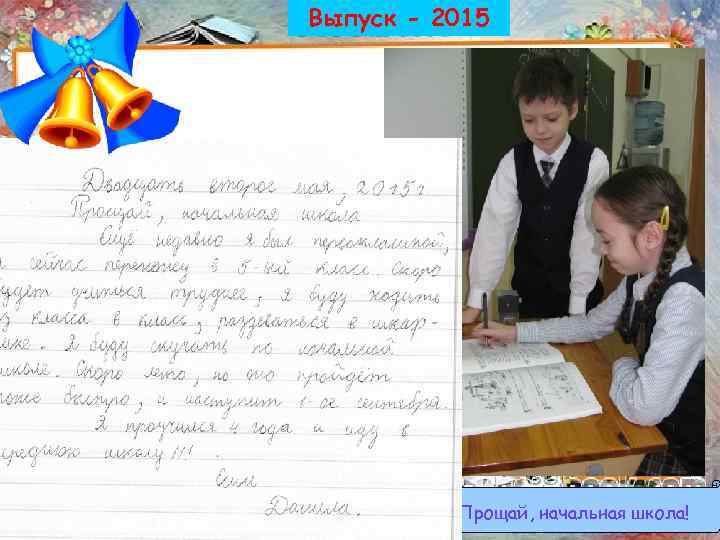 Выпуск - 2015
Двадцать второе мая, 2015 г
Прощай, начальная школа
Ещё недавно я был первоклашкой,
сейчас перехожу в 5-ый класс. Скоро
будет учиться труднее, я буду ходить
из класса в класс, раздеваться в шкаф-
чике. Я буду скучать по начальной
школе. Скоро лето, но оно пройдёт
тоже быстро, и наступит 1-ое сентября.
Я проучился 4 года и иду в
среднюю школу!!!
Данила.
Прощай, начальная школа!